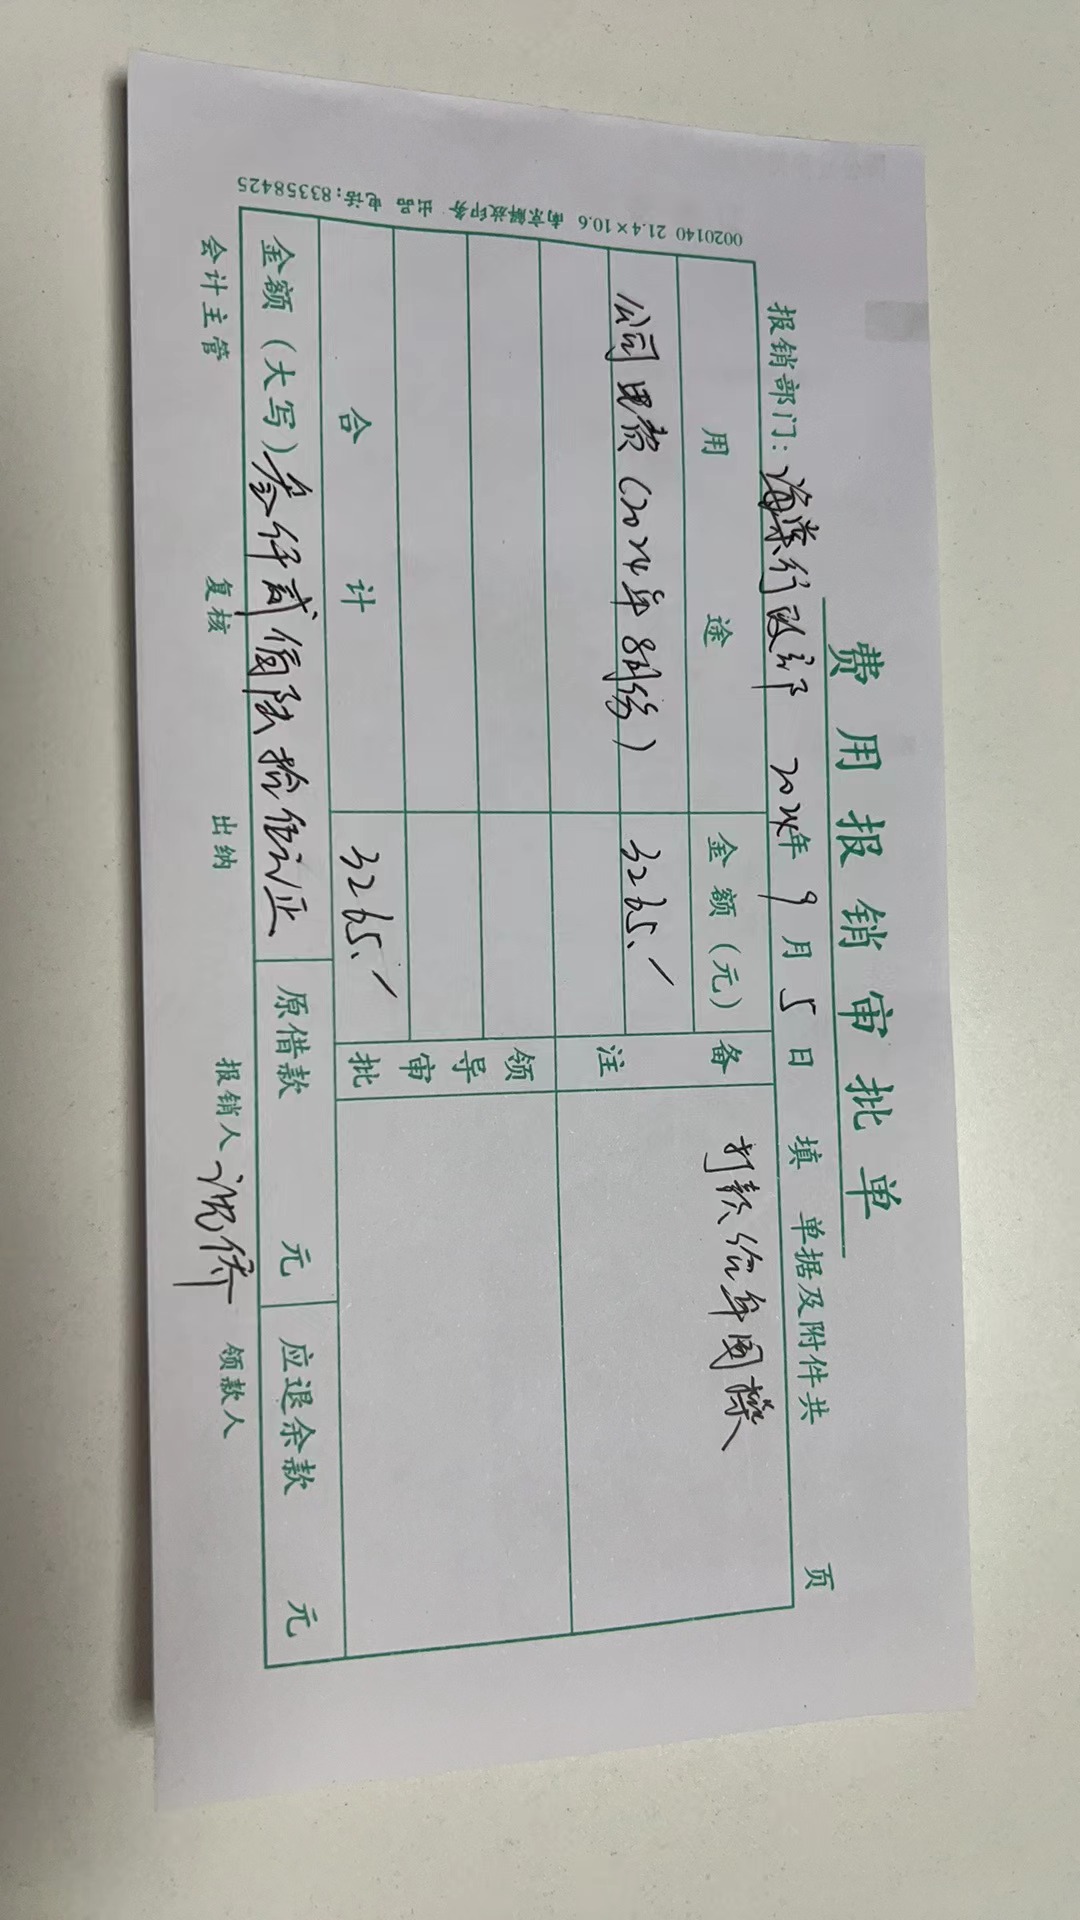 费用报销审批单
报销部门：海棠行政部 2024年 9 月 5 日 填 单据及附件共 页
用途 金额（元） 备注 打款给牟国
公司电费（2024年8月份） 3265.
领导审批
合计 3265.
金额（大写）叁仟贰佰陆拾伍元正 原借款 元 应退余款 元
会计主管 复核 出纳 报销人 沈侨 领款人
0020140 21.4×10.6 南京解放印务 出品 电话：83358425